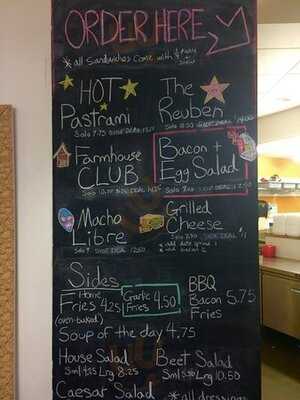 ORDER HERE
*all Sandwiches come with
HOT
Pastrami
Solo 7.75 SIDE DEAL
The
Reuben
Solo SIDE DEAL
Farmhouse
CLUB
Solo SIDE DEAL
Bacon +
Egg Salad
Solo SIDE DEAL
Macho
Libre
Solo 9 SIDE DEAL 12.50
Grilled
Cheese
Solo SIDE DEAL
Sides
Home
Fries 4.25
(oven-baked)
Garlic
Fries 4.50
BBQ
Bacon 5.75
Fries
Soup of the day 4.75
House Salad
Sml Lrg 8.25
Beet Salad
Sml Lrg 10.50
Caesar Salad
*all dressings